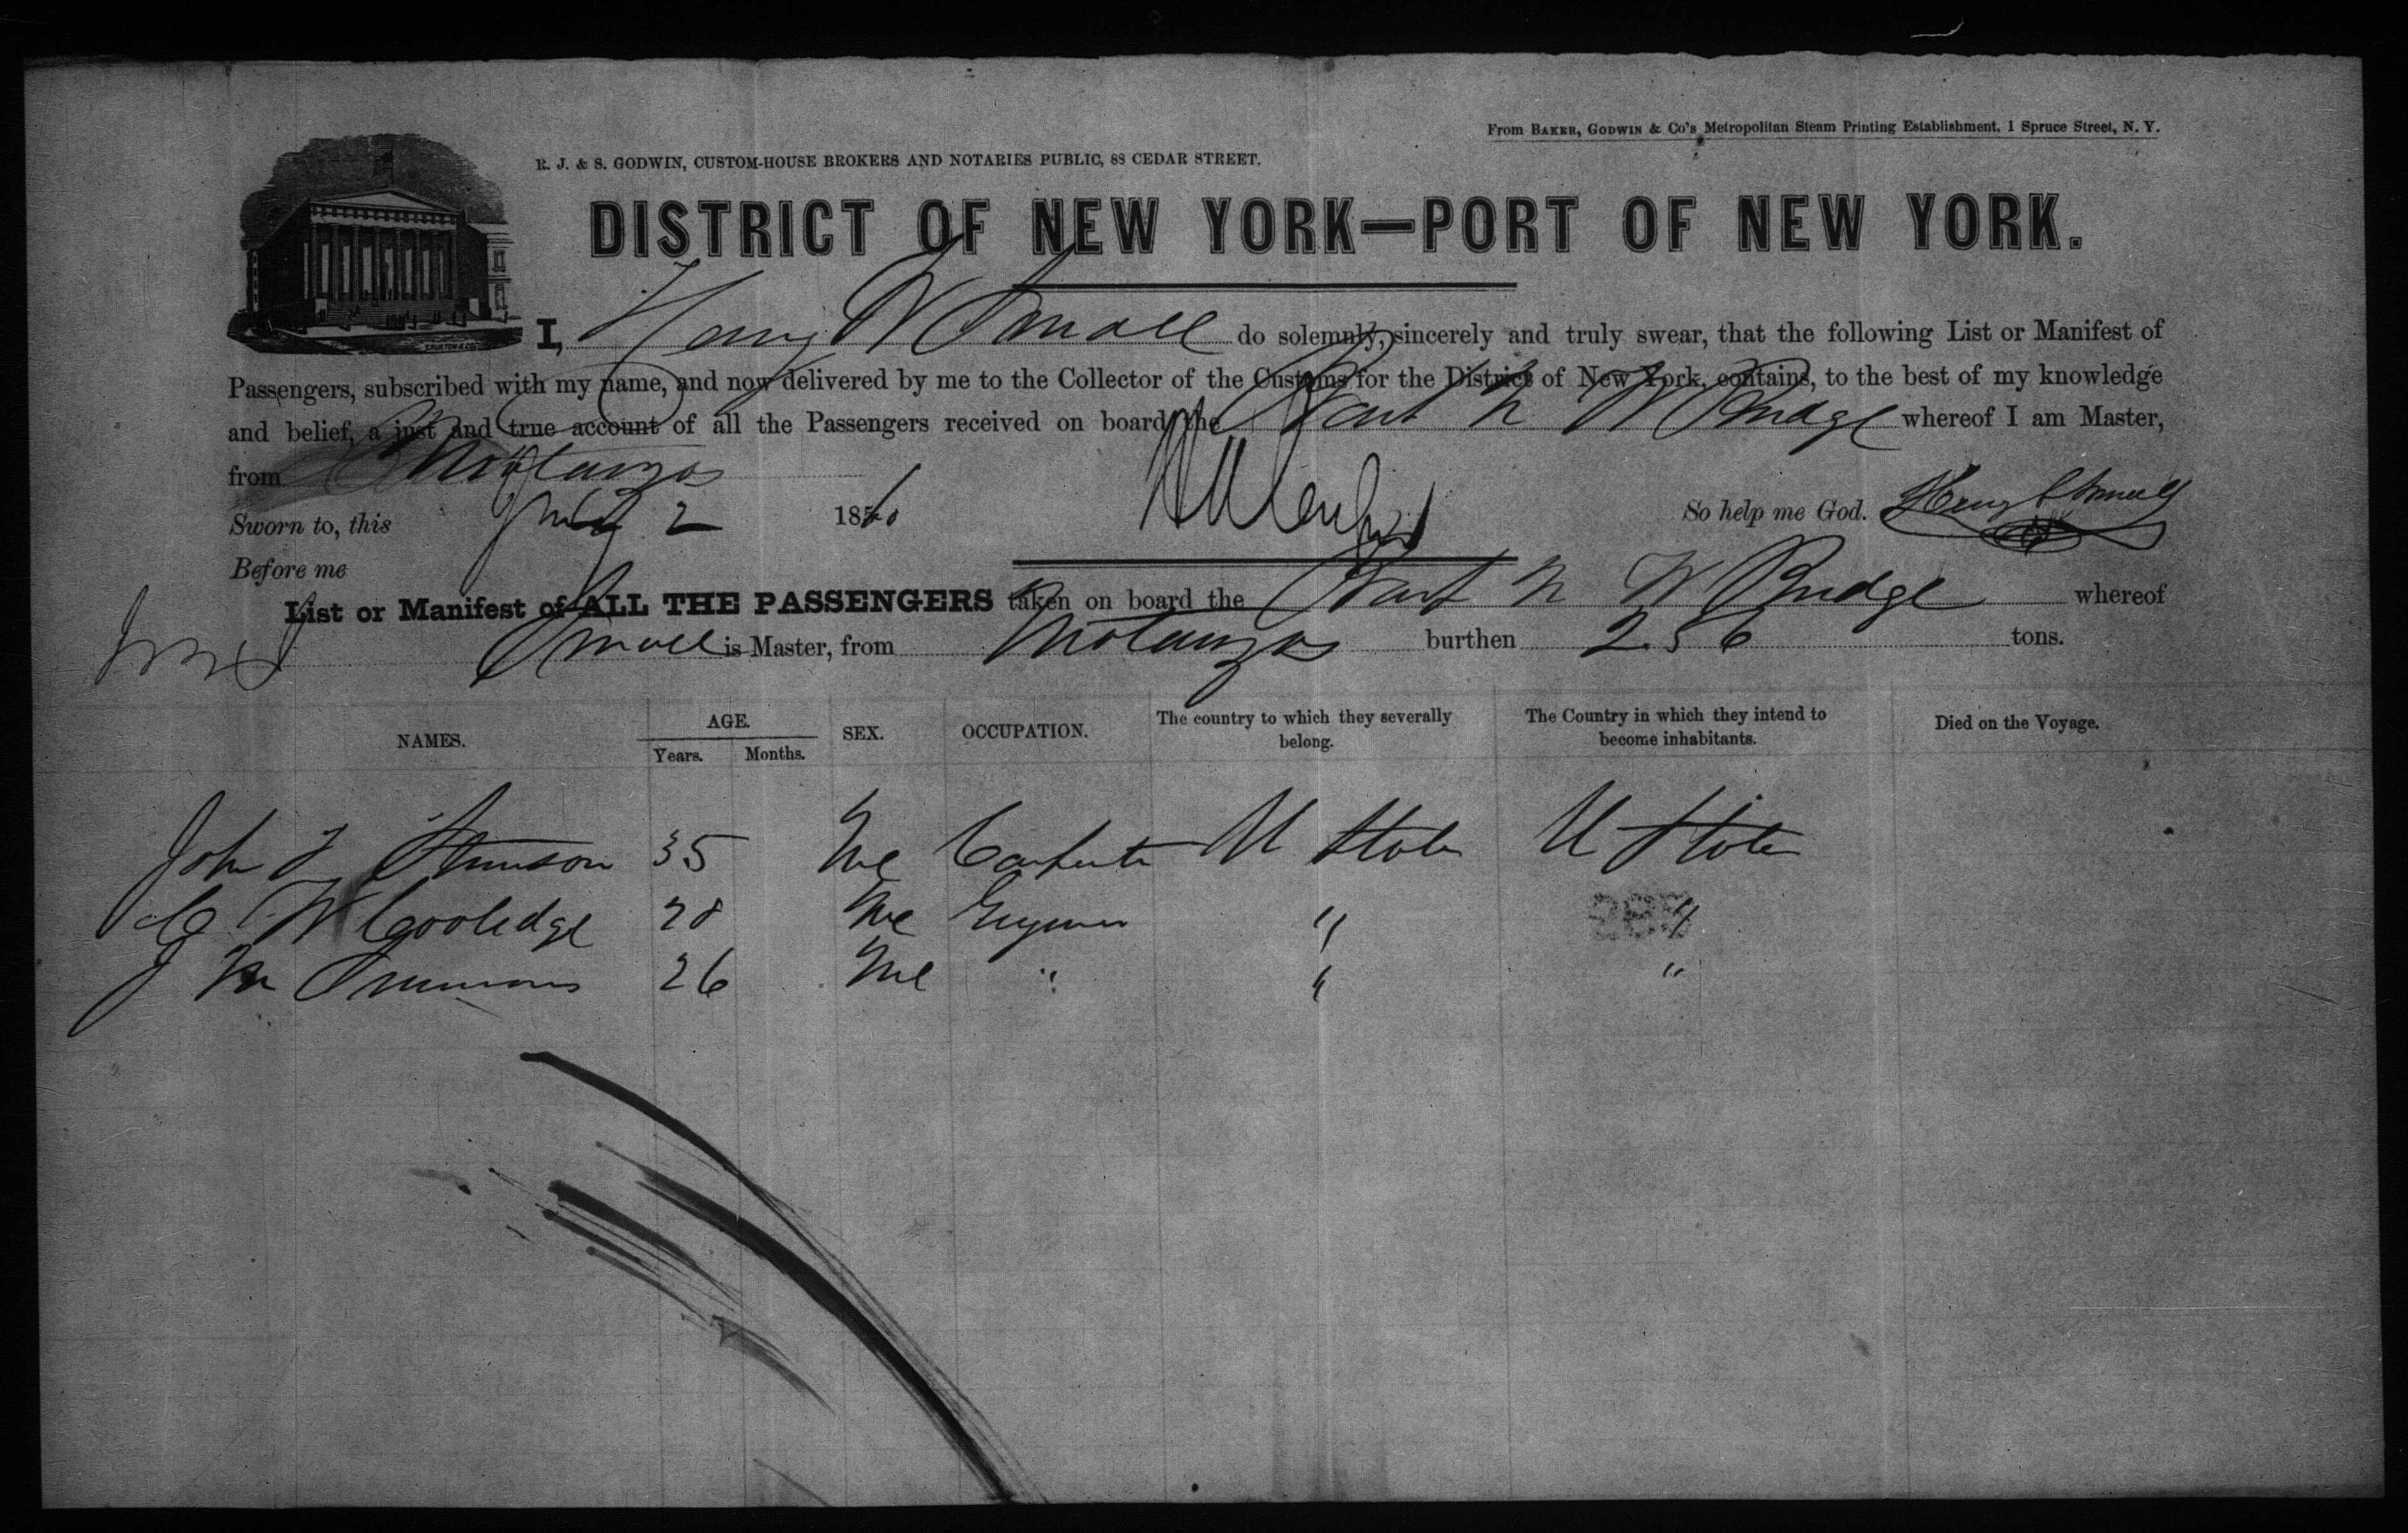 From BAKER, GODWIN & Co's Metropolitan Steam Printing Establishment, 1 Spruce Street, N. Y.
R. J. & S. GODWIN, CUSTOM-HOUSE BROKERS AND NOTARIES PUBLIC, 88 CEDAR STREET.
DISTRICT OF NEW YORK—PORT OF NEW YORK.
I, Henry W Small do solemnly, sincerely and truly swear, that the following List or Manifest of
Passengers, subscribed with my name, and now delivered by me to the Collector of the Customs for the District of New York, contains, to the best of my knowledge
and belief, a just and true account of all the Passengers received on board the N W Bridge whereof I am Master,
from Matanzas
Sworn to, this July 2 1860 So help me God. Henry Small
Before me
List or Manifest of ALL THE PASSENGERS taken on board the N W Bridge whereof
Small is Master, from Matanzas burthen 256 tons.
NAMES. AGE. SEX. OCCUPATION. The country to which they severally belong. The Country in which they intend to become inhabitants. Died on the Voyage.
Years. Months.
John Stimson 35 Me Carpenter U State U State
C W Cooledge 28 Me Engineer " "
J M Simmons 26 Me " " "